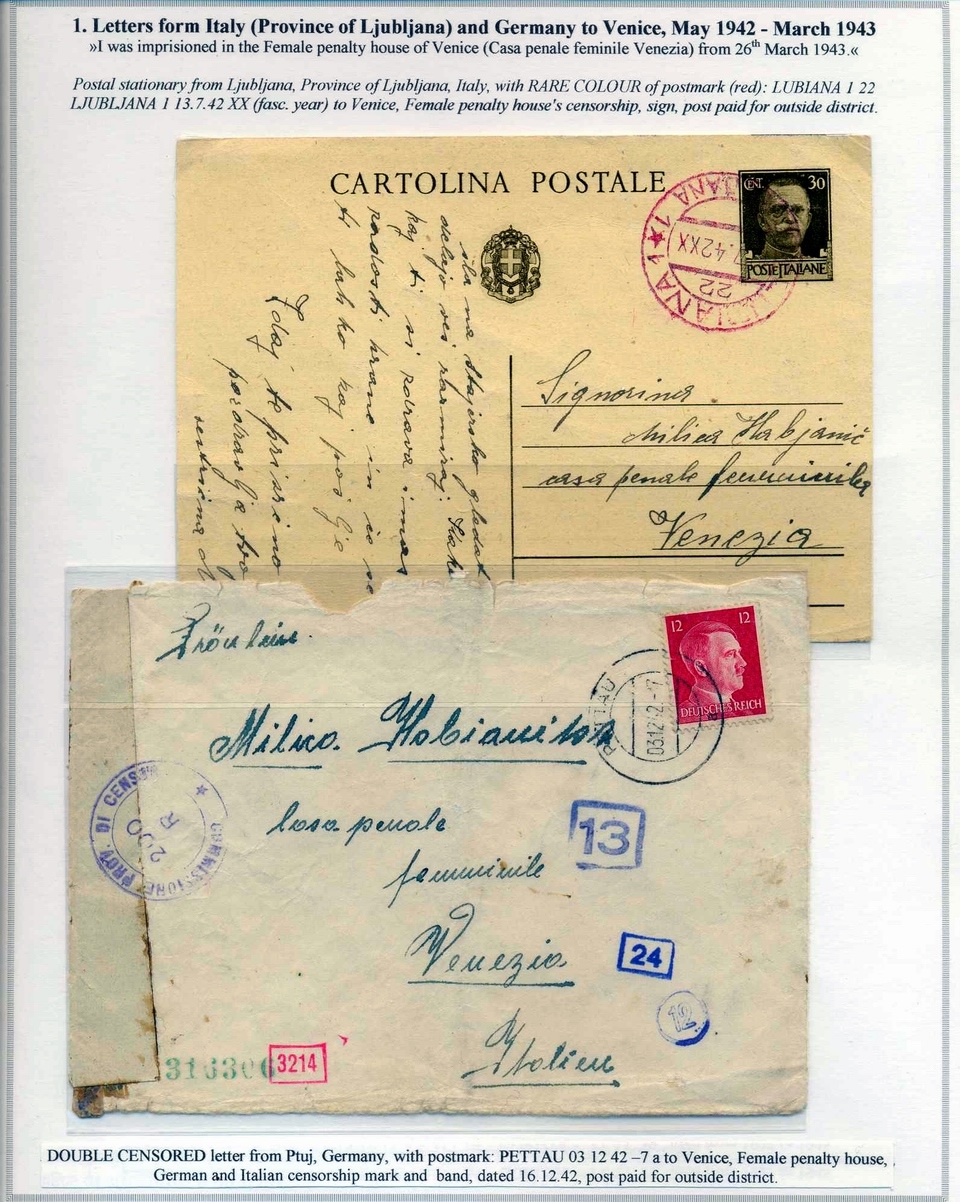 1. Letters form Italy (Province of Ljubljana) and Germany to Venice, May 1942 - March 1943
»I was imprisioned in the Female penalty house of Venice (Casa penale feminile Venezia) from 26th March 1943.«
Postal stationary from Ljubljana, Province of Ljubljana, Italy, with RARE COLOUR of postmark (red): LUBIANA 1 22
LJUBLJANA 1 13.7.42 XX (fasc. year) to Venice, Female penalty house's censorship, sign, post paid for outside district.
CARTOLINA POSTALE
CENT. 30
POSTE ITALIANE
22
.7.42 XX
šla na Štajersko gledat
delajo vsi
kaj ti si zdrava imaš
radosti hrane in če se
ti lahko kaj pošlje
Zdaj te prisrčno
pozdravlja
sestrična
Signorina
Milica Habjanič
casa penale femminile
Venezia
Fräulein
12 12
DEUTSCHES REICH
PETTAU
03.12.42.-7
Milica
casa penale
femminile
Venezia
Italien
COMMISSIONE PROV. DI CENSURA
200
R
13
24
12
316306
3214
DOUBLE CENSORED letter from Ptuj, Germany, with postmark: PETTAU 03 12 42 –7 a to Venice, Female penalty house,
German and Italian censorship mark and band, dated 16.12.42, post paid for outside district.